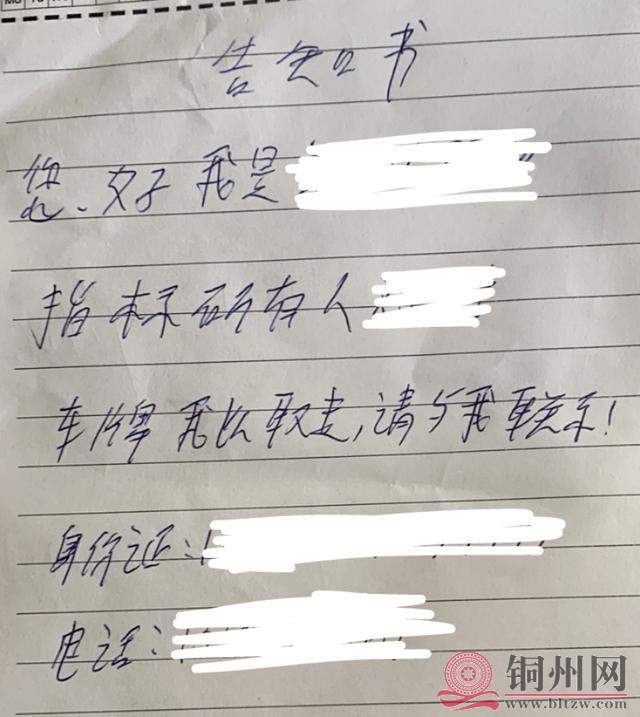 告知书
您、好我是
指标所有人
车牌我以取走,请与我联系!
身份证:
电话:
铜州网
www.bltzw.com